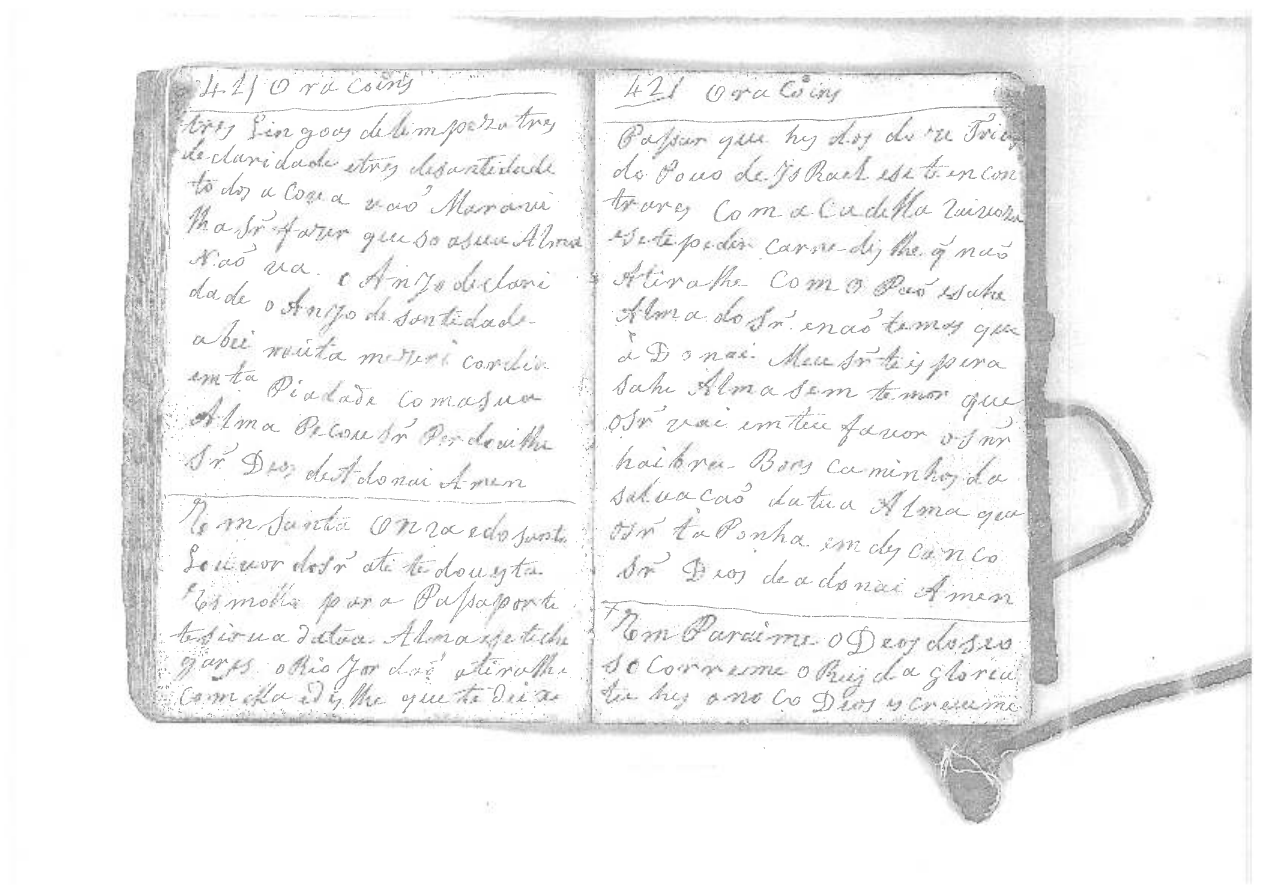 421 Oracoins
tres Lingoas delimpeza tres
declaridade etres desantidade
todos a Coua uaõ Maraui
lha Sr̃ fazer que so asua Alma
Naõ ua. o Anjo declari
dade o Anjo desantidade
abei muita mezeri cordia
emta Piadade comasua
Alma Pecou Sr̃ Perdoailhe
Sr̃ Deos deAdonai Amen
Em Santa Onra edo santo
Louuor doSr̃ ate te dou esta
Esmolla para Pasaporte
tesirua datua Alma esete che
gares o Rio Jordaõ atiralhe
Comella edislhe que te deixe
421 Oracoins
Pasar que hes dos doze Tribos
do Pouo de JsRael esete encon
trares Com a Cadella Raiuoza
esetepedir carne dislhe q̃ naõ
Atiralhe Com o Paõ esahe
Alma do Sr̃ enaõ temas que
à Donai. Meu Sr̃ te espera
sahe Alma sem temor que
oSr̃ vai emteu fauor o Snr̃
hai bra Bons caminhos da
saluacaõ datua Alma que
oSr̃ ta Ponha em descanco
Sr̃ Deos de adonai Amen
Em Paraime o Deos doseo
socorreime o Rei da gloria
tu hes o no co Deos escreueime